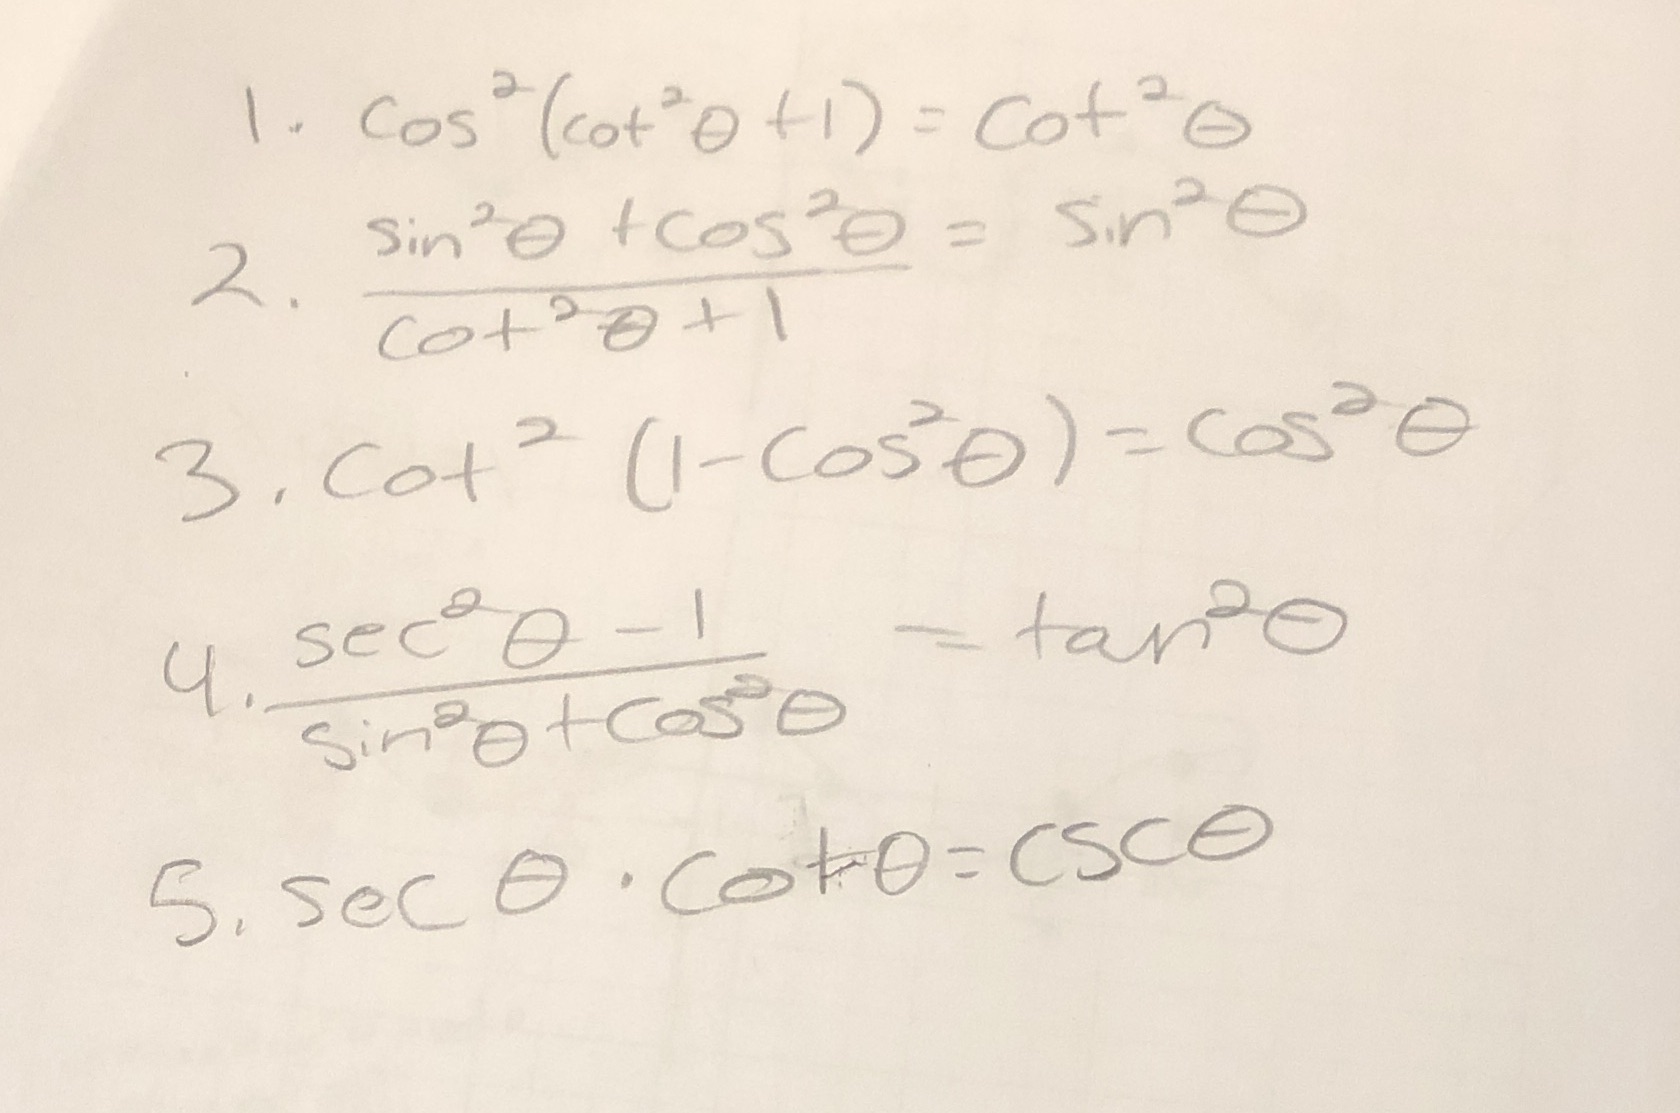 1. cos²(cot²θ+1) = cot²θ
2. sin²θ + cos²θ / cot²θ + 1 = sin²θ
3. cot² (1-cos²θ) = cos²θ
4. sec²θ - 1 / sin²θ + cos²θ = tan²θ
5. sec θ · cotθ = cscθ